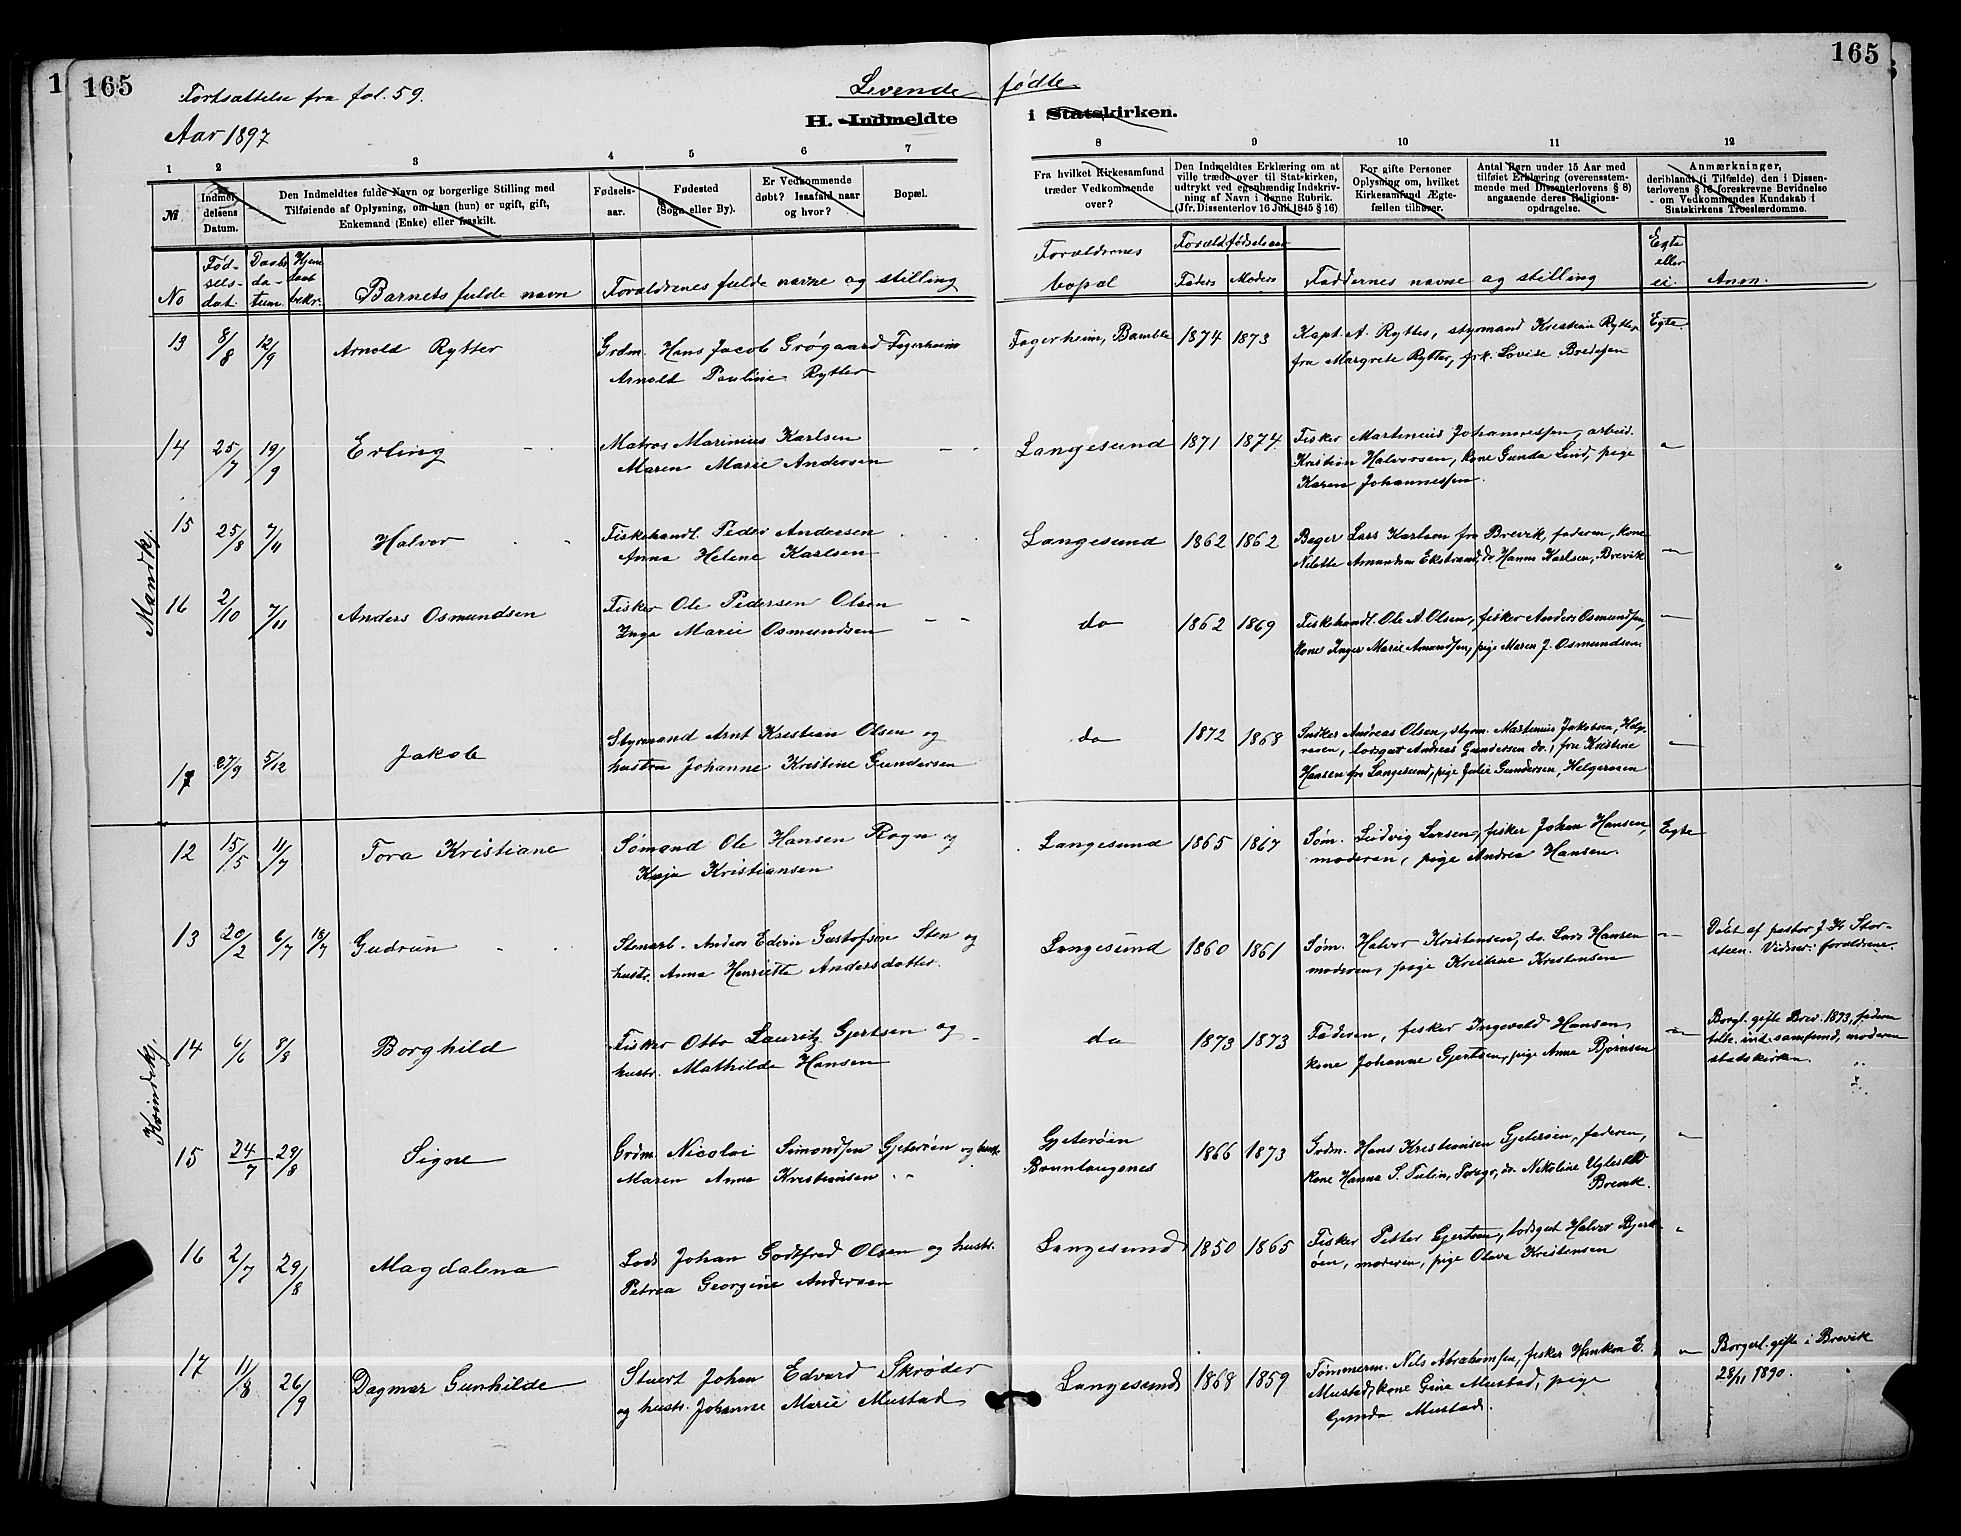 165
165
Fortsættelse fra fol. 59.
Levende fødte
Aar 1897
H. Indmeldte i Statskirken.
1 2 3 4 5 6 7 8 9 10 11 12
№
Indmeldelsens Datum.
Den Indmeldtes fulde Navn og borgerlige Stilling med
Tilføiende af Oplysning, om han (hun) er ugift, gift,
Enkemand (Enke) eller fraskilt.
Fødselsaar.
Fødested
(Sogn eller By).
Er Vedkommende
døbt? Isaafald naar
og hvor?
Bopæl.
Fra hvilket Kirkesamfund
træder Vedkommende
over?
Den Indmeldtes Erklæring om at
ville træde over til Statskirken,
udtrykt ved egenhændig Indskrivning
af Navn i denne Rubrik.
(Jfr. Dissenterlov 16 Juli 1845 § 16)
For gifte Personer
Oplysning om, hvilket
Kirkesamfund Ægtefællen
tilhører.
Antal Børn under 15 Aar med
tilføiet Erklæring (overensstemmende
med Dissenterlovens § 8)
angaaende deres Religionsopdragelse.
Anmærkninger,
deriblandt (i Tilfælde) den i Dissenterlovens
§ 16 foreskrevne Bevidnelse
om Vedkommendes Kundskab i
Statskirkens Troeslærdomme.
No
Fødselsdat.
Daabsdatum
Hjemdaab bekr.
Barnets fulde navn
Forældrenes fulde navne og stilling
Forældrenes bopæl
Foræld. fødselsaar
Faders Moders
Faddernes navne og stilling
Egte eller ei.
Anm.
Mandkj.
13 8/8 12/9 Arnold Rytter
Grdm. Hans Jacob Grøgaard Fagerheim
Arnolda Pauline Rytter
Fagerheim, Bamble 1874 1873
Kapt. A. Rytter, styrmand Kristian Rytter
fru Margrete Rytter, frk. Lovise Bredesen
Egte
14 25/7 19/9 Erling
Matros Marinius Karlsen
Maren Marie Andersen
Langesund 1871 1874
Fisker Martinius Johannessen, arbeid.
Kristian Halvorsen, kone Gunda Lind, pige
Karen Johannessen.
15 25/8 7/11 Halvor
Fiskehandl. Peder Andersen
Anna Helene Karlsen
Langesund 1862 1862
Bager Lars Karlsen fra Brevik, faderen, kone
Nilette Amundsen Ekstrand, do Hanna Karlsen, Brevik
16 2/10 7/11 Anders Osmundsen
Fisker Ole Pedersen Olsen
Inga Marie Osmundsen
do 1862 1869
Fiskehandl. Ole A. Olsen, fisker Anders Osmundsen,
kone Inger Marie Amundsen, pige Maren J. Osmundsen.
17 27/9 5/12 Jakob
Styrmand Arnt Kristian Olsen og
hustru Johanne Kristine Gundersen
do 1872 1868
Andreas Olsen, styrm. Martinius Jakobsen, Helgeroen,
lodsgut Andreas Gundersen do., fru Kristine
Hansen fra Langesund, pige Julie Gundersen, Helgeroen
Kvindekj.
12 15/5 11/7 Tora Kristiane
Sømand Ole Hansen Rogn og
Kaja Kristiansen
Langesund 1865 1867
Søm. Ludvig Larsen, fisker Johan Hansen,
moderen, pige Andrea Hansen.
Egte
13 20/2 6/7 18/7 Gudrun
Stenarb. Anders Edvin Gustafson Sten og
hustr. Anna Henriette Andersdatter.
Langesund 1860 1861
Søm. Halvor Kristensen, do. Lars Hansen
moderen, pige Kristine Kristensen
Døbt af pastor J. Kr. Storsteen.
Vidner: forældrene.
14 6/6 8/8 Borghild
Fisker Otto Lauritz Gjertsen og
hustr. Mathilde Hansen
do 1873 1873
Faderen, fisker Ingevald Hansen,
kone Johanne Gjertsen, pige Anna Bjørnsen
Borgl. gifte Brev. 1873, faderen
tilh. ind. samfund, moderen
statskirken.
15 24/7 29/8 Signe
Grdm. Nicolai Simondsen Gjeterøen og hustr.
Maren Anna Kristiansen
Gjeterøen
Brunlangenes 1866 1873
Grdm. Hans Kristiansen Gjeterøen, faderen,
kone Hanna S. Tulin, Porsgr., do. Nikoline
Brevik.
16 2/7 29/8 Magdalena
Lods Johan Godtfred Olsen og hustr.
Petrea Georgine Andersen
Langesund 1850 1865
Fisker Petter Gjertsen, lodsgut Halvor Bjerkøen,
moderen, pige Olava Kristensen
17 11/8 26/9 Dagmar Gunhilde
Stuert Johan Edvard Skrøder
og hustr. Johanne Marie Mustad
Langesund 1868 1859
Tømmerm. Nils Abrahamsen, fisker Haakon E.
Mustad, kone Gine Mustad, pige
Gunda Mustad.
Borgerl. gifte i Brevik
28/11 1890.